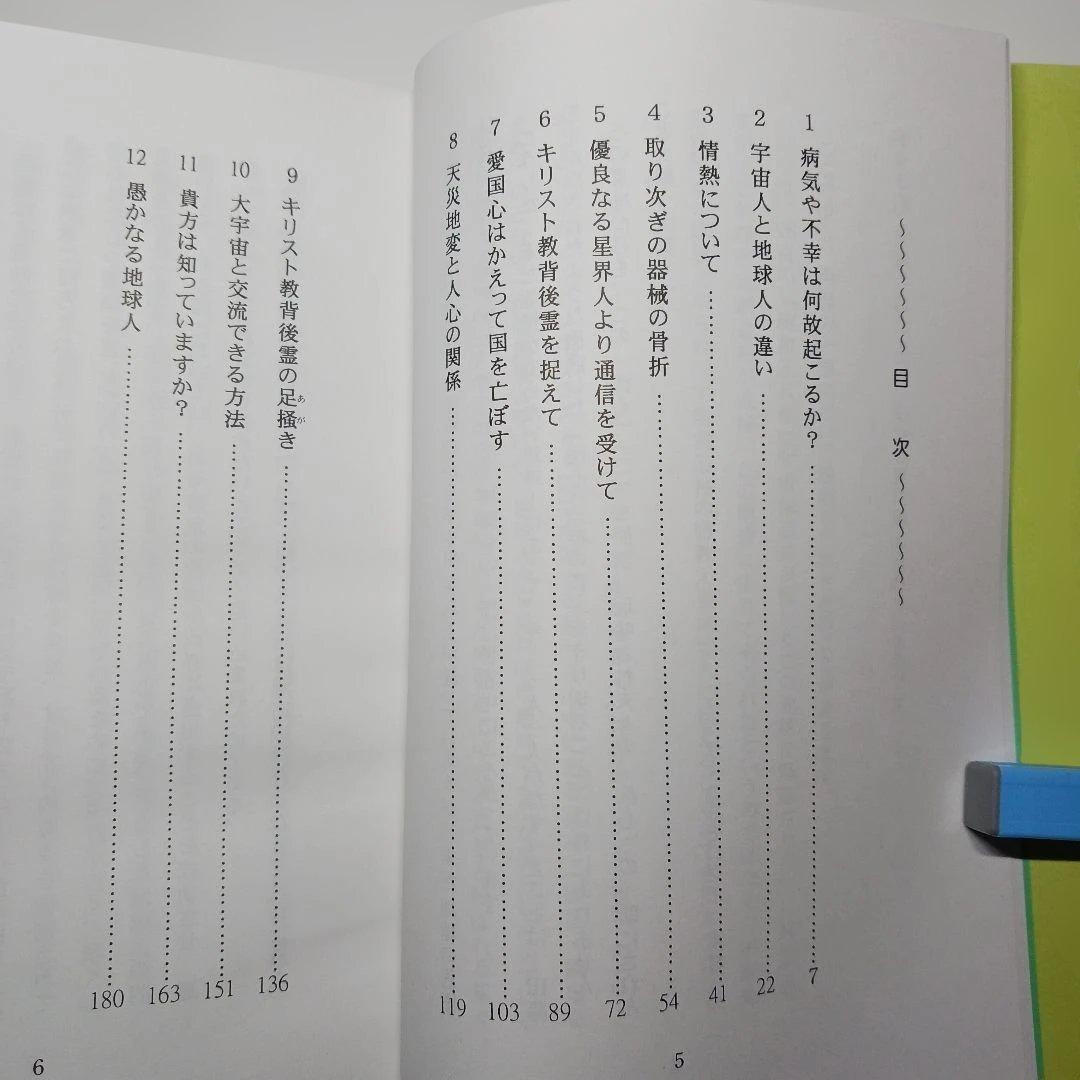 〜〜〜〜〜〜 目 次 〜〜〜〜〜〜
1 病気や不幸は何故起こるか？ …… 7
2 宇宙人と地球人の違い …… 22
3 情熱について …… 41
4 取り次ぎの器械の骨折 …… 54
5 優良なる星界人より通信を受けて …… 72
6 キリスト教背後霊を捉えて …… 89
7 愛国心はかえって国を亡ぼす …… 103
8 天災地変と人心の関係 …… 119
5
9 キリスト教背後霊の足掻き（あがき） …… 136
10 大宇宙と交流できる方法 …… 151
11 貴方は知っていますか？ …… 163
12 愚かなる地球人 …… 180
6